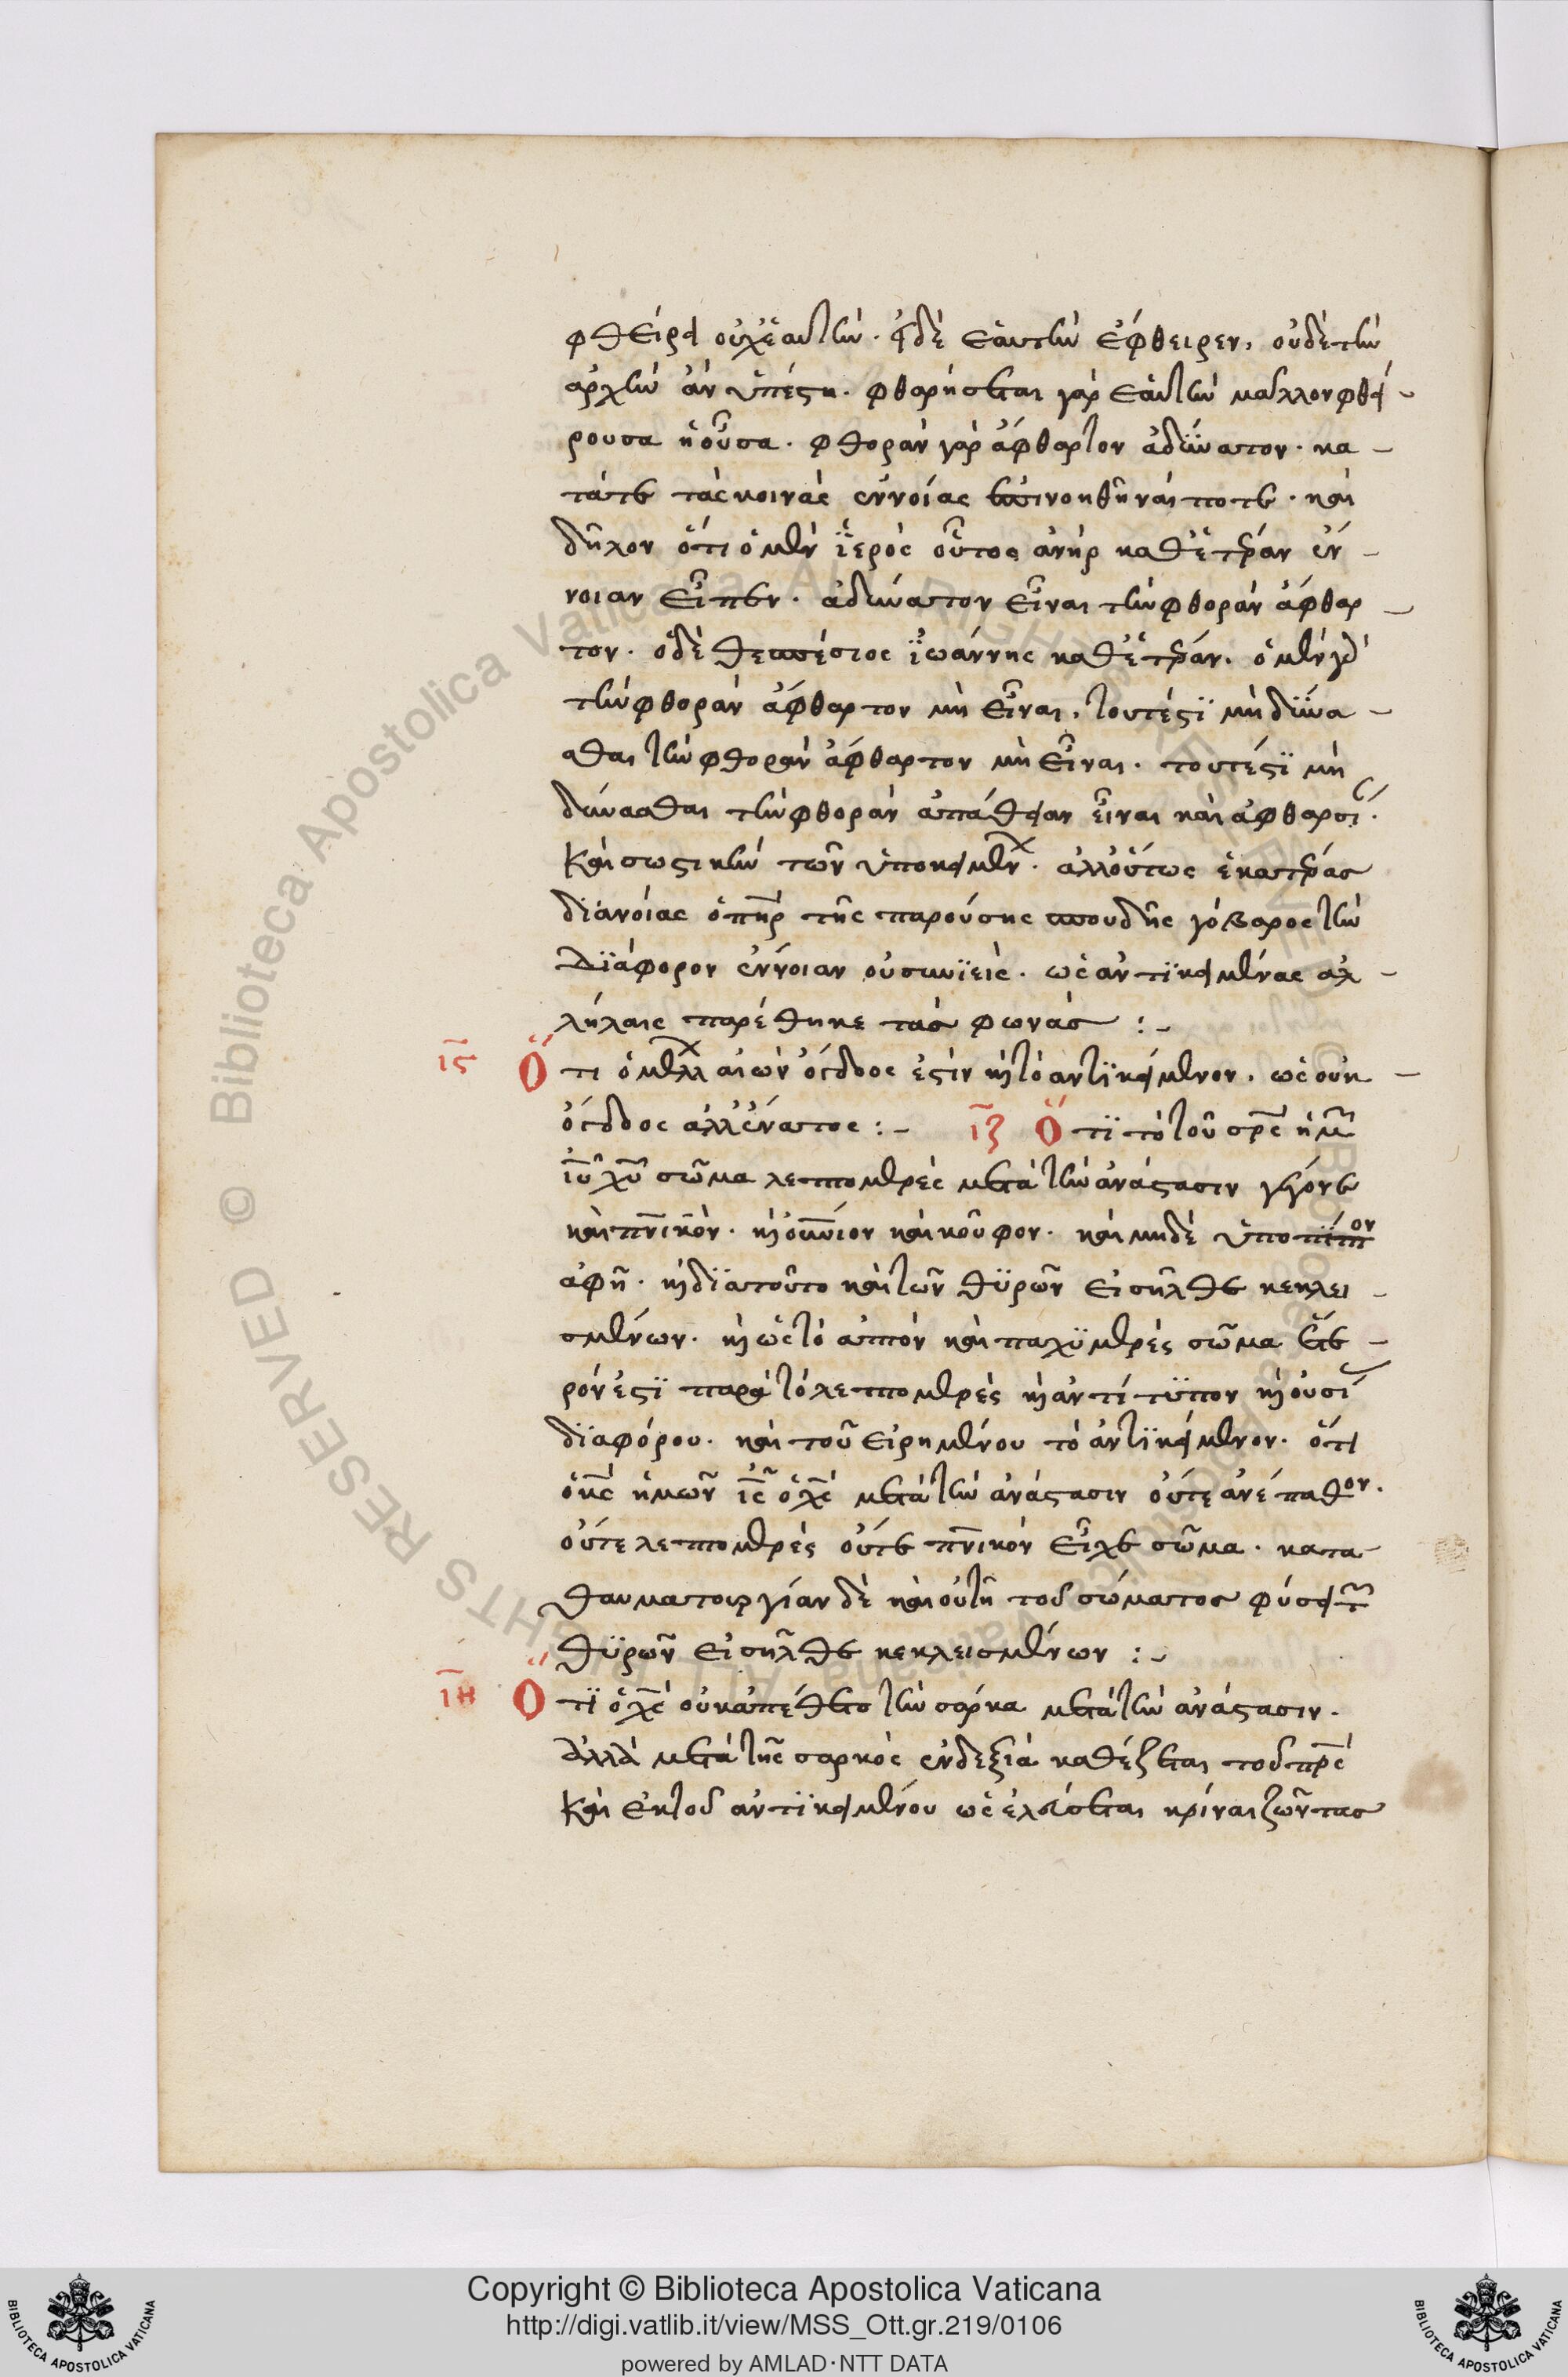 φθείρει οὐχ ἑαυτὴν. εἰ δὲ ἑαυτὴν ἔφθειρεν, οὐδὲ τὴν
ἀρχὴν ἂν ὑπέστη. φθαρήσεται γὰρ ἑαυτὴν μᾶλλον φθεί-
ρουσα ἢ οὖσα. φθορὰν γὰρ ἄφθαρτον ἀδύνατον. κα-
τά τε τὰς κοινὰς ἐννοίας ἐπινοηθῆναί ποτε. καὶ
δῆλον ὅτι ὁ μὲν ἱερὸς οὗτος ἀνὴρ καθ' ἑτέραν ἔν-
νοιαν εἶπεν. ἀδύνατον εἶναι τὴν φθορὰν ἄφθαρ-
τον. ὁ δὲ θεσπέσιος ἰωάννης καθ' ἑτέραν. ὁ μὲν γὰρ
τὴν φθορὰν ἄφθαρτον μὴ εἶναι, τουτέστι μὴ δύνα-
σθαι τὴν φθορὰν ἄφθαρτον μὴ εἶναι. τουτέστι μὴ
δύνασθαι τὴν φθορὰν ἀπάθειαν εἶναι καὶ ἀφθαρσί.
καὶ σωστικὴν τῶν ὑποκειμέν. ἀλλ' οὕτως ἑκατέρας
διανοίας ὁ πηρ τῆς παρούσης σπουδῆς γόβαρος τὴν
διάφορον ἔννοιαν οὐ συνιεὶς. ὡς ἀντικειμένας ἀλ-
λήλαις παρέθηκε τὰς φωνάς :-
ις Ὅτι ὁ μέλλ αἰὼν ὄγδοος ἐστὶν καὶ τὸ ἀντικείμενον. ὡς οὐκ -
ὄγδοος ἀλλ' ἔνατος :- ιζ Ὅτι τὸ τοῦ σρς ἡμ
ιυ χυ σῶμα λεπτομερὲς μετὰ τὴν ἀνάστασιν γέγονε
καὶ πνικὸν. καὶ οὐνιον καὶ κοῦφον. καὶ μηδὲ ὑποπίπτον
ἁφῆ. καὶ διατοῦτο καὶ τῶν θυρῶν εἰσῆλθε κεκλει-
σμένων. καὶ ὡς τὸ ἁπτὸν καὶ παχυμερὲς σῶμα ἕτε-
ρόν ἐστι παρὰ τὸ λεπτομερὲς καὶ ἀντίτυπον καὶ οὐσί
διαφόρου. καὶ τοῦ εἰρημένου τὸ ἀντικείμενον. ὅτι
ὁ κς ἡμῶν ις ὁ χς μετὰ τὴν ἀνάστασιν οὔτε ἀνέπαφον.
οὔτε λεπτομερὲς οὔτε πνικὸν εἶχε σῶμα. κατα
θαυματουργίαν δὲ καὶ οὐ τῆ τοῦ σώματος φύσει τ
θυρῶν εἰσῆλθε κεκλεισμένων :-
ιη Ὅτι ὁ χς οὐκ ἀπέθετο τὴν σάρκα μετὰ τὴν ἀνάστασιν.
ἀλλὰ μετὰ τῆς σαρκὸς ἐν δεξιᾶ καθέζεται τοῦ πρς
καὶ ἐκ τοῦ ἀντικειμένου ὡς ἐλεύσεται κρῖναι ζῶντας
BIBLIOTECA APOSTOLICA VATICANA
Copyright © Biblioteca Apostolica Vaticana
http://digi.vatlib.it/view/MSS_Ott.gr.219/0106
powered by AMLAD·NTT DATA
BIBLIOTECA APOSTOLICA VATICANA